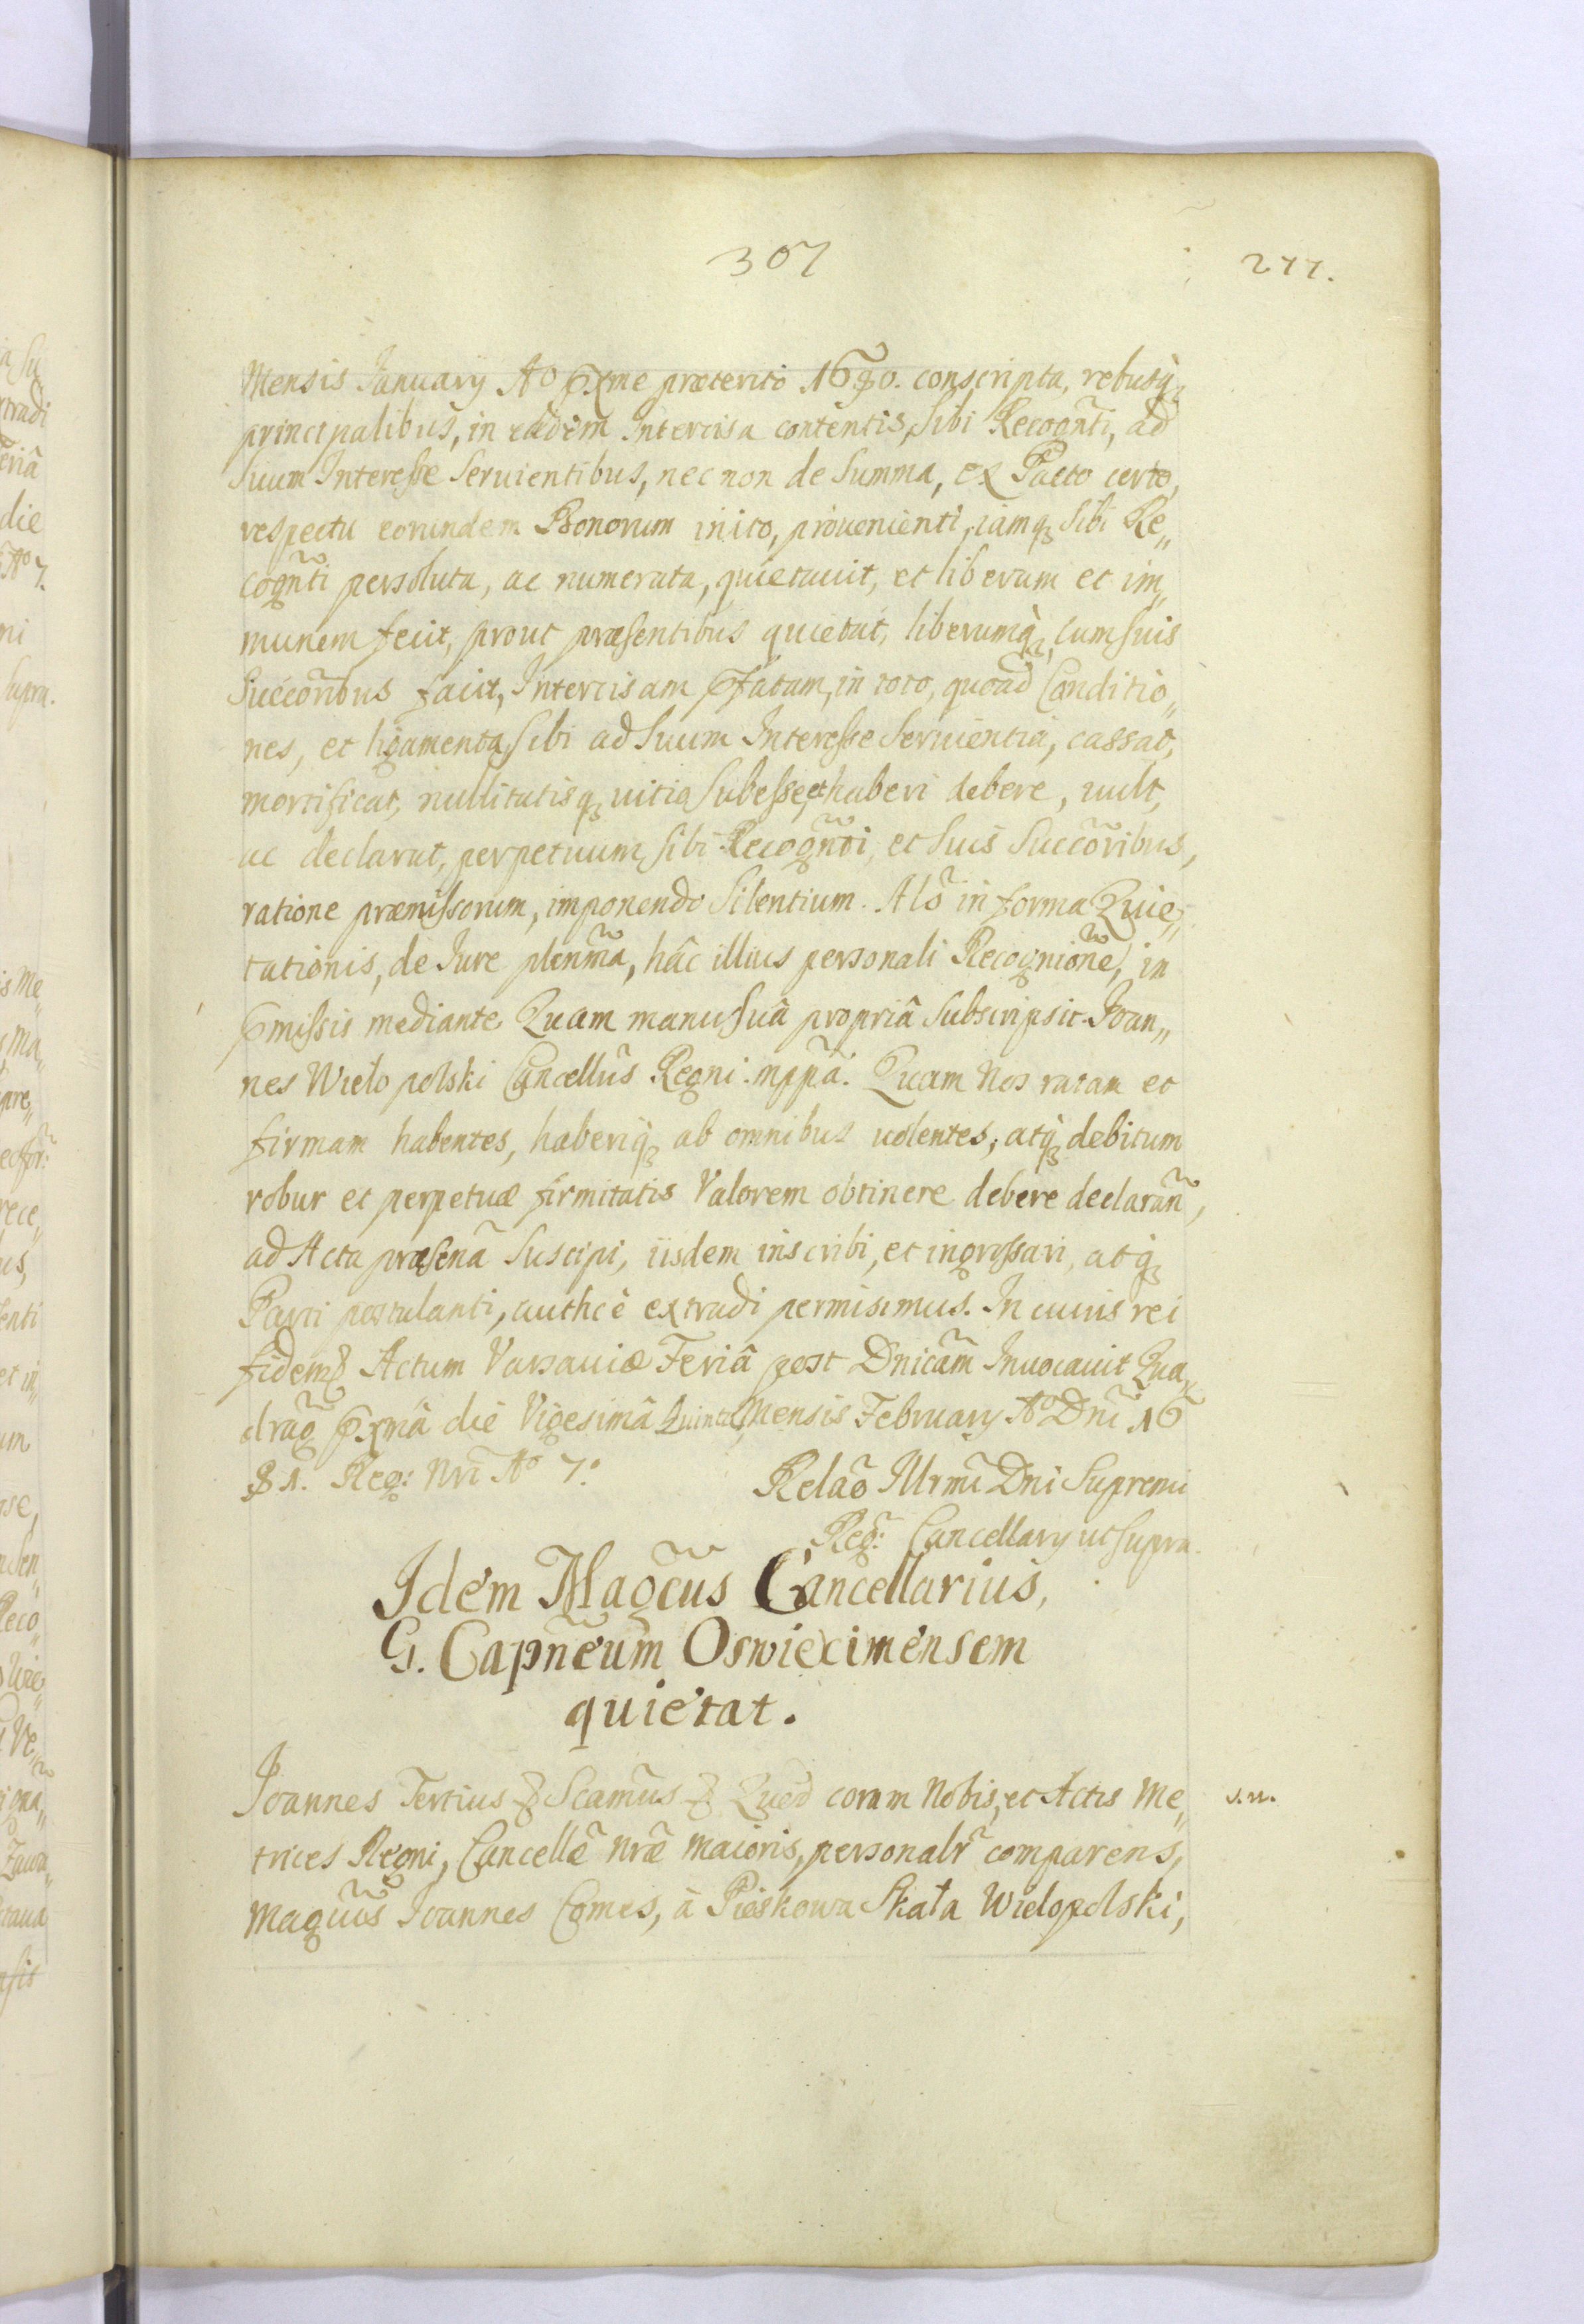 307
277.
Mensis January Aº pxme præterito 1680. conscripta, rebusq̀
principalibus, in eadem Intercisa contentis, sibi Recogñti, ad
suum Interesse seruientibus, nec non de summa, ex Pacto certo,
respectu eorundem Bonorum inito, prouenienti, iamq̨ sibi Re„
cogñti persoluta, ac numerata, quietauit, et liberum et im„
munem fecit, prout præsentibus quietat, liberumq̀, cum suis
Succõribus facit, Intercisam pfatam, in toto, quoad Conditio„
nes, et ligamenta, sibi ad suum Interesse seruientia, cassat,
mortificat, nullitatisq̨ uitio subesse, et haberi debere, uult,
ac declarat, perpetuum sibi Recogñti, et suis Succõribus,
ratione præmissorum, imponendo silentium. Alõ in forma Quie„
tationis, de Iure plenm̃a, hâc illius personali Recogniõne, in
pmissis mediante Quam manu suâ propriâ subscripsit. Ioan„
nes Wielopolski Cancellũs Regni. mppã. Quam Nos ratam et
firmam habentes, haberiq̀ ab omnibus uolentes, atq̀ debitum
robur et perpetuæ firmitatis Valorem obtinere debere declarañ,
ad Acta præsenã suscipi, iisdem inscribi, et ingrossari, atq̀
Parti postulanti, authcè extradi permisimus. In cuius rei
fidem & Actum Varsauiæ Feriâ post Dnicãm Inuocauit Qua„
drag̃ pxmâ die Vigesimâ Quinta Mensis February Aº Dnĩ 16
81. Reg: Nrĩ Aº 7º
Relaõ Illrmĩ Dni Supremi
Reg: Cancellary ut supra.
Idem Magc̃us Cancellarius,
G. Capñeum Oswiecimensem
quietat.
Ioannes Tertius & Scam̃us & Quod coram Nobis, et Actis Me„
s.n.
trices Regni, Cancellæ̃ nræ̃ maioris, personalr̃ comparens,
Magcũs Ioannes Comes, à Pieskowa Skała Wielopolski,